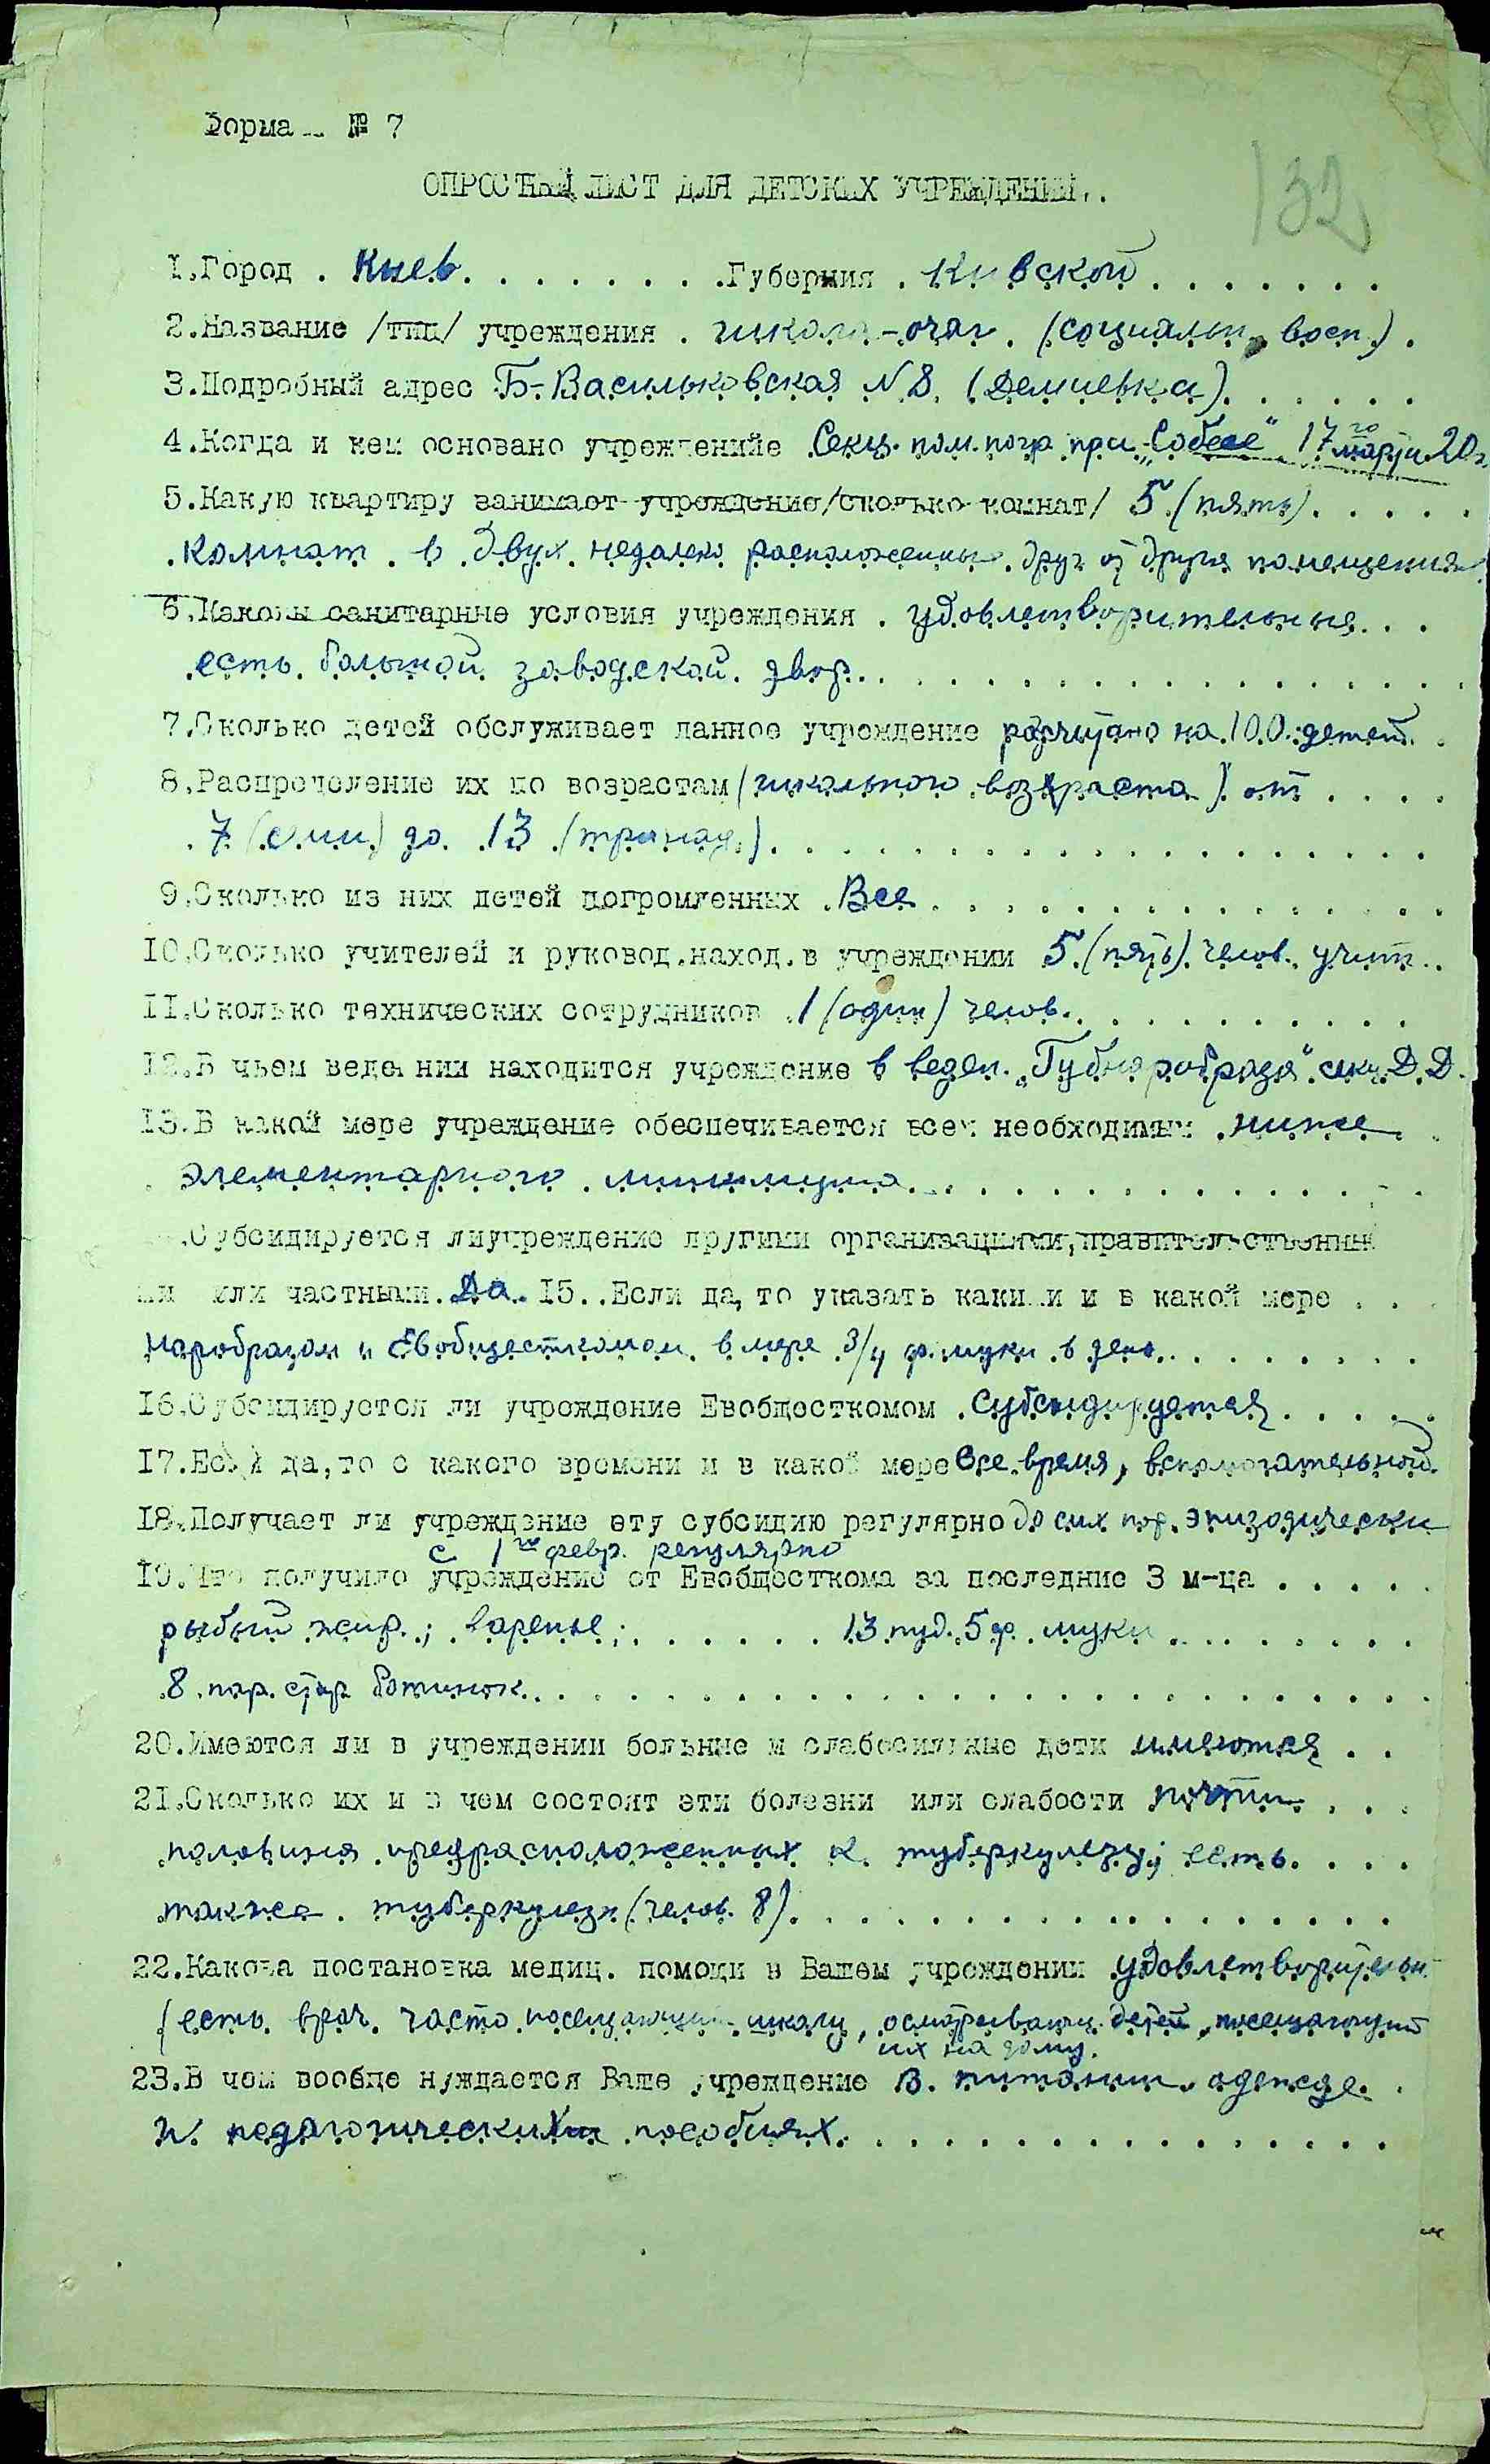 Форма № 7
132
ОПРОСНЫЙ ЛИСТ ДЛЯ ДЕТСКИХ УЧРЕЖДЕНИЙ.
1.Город . Киев. . . . . . . .Губерния . Киевской . . . . . . .
2.Название /тип/ учреждения . школа-очаг . (социальн. восп.) .
3.Подробный адрес Б-Васильковская N 8. (Демиевка). . . . . .
4.Когда и кем основано учреждениие Секц. пом. погр. при „Собесе“ 17го марта 20г.
5.Какую квартиру занимает учреждение/сколько комнат/ 5 (пять). . . . .
комнат . в двух недалеко расположенных друг от друга помещениях.
6.Каковы санитарные условия учреждения . удовлетворительные. . .
есть большой заводской двор. . . . . . . . . . . . . . . . . .
7.Сколько детей обслуживает данное учреждение расчитано на 100 детей. .
8.Распределение их по возрастам (школьного возраста) от . . . .
7 (семи) до 13 (тринад.). . . . . . . . . . . . . . . . . .
9.Сколько из них детей погромленных . Все . . . . . . . . . . . . .
10.Сколько учителей и руковод.наход.в учреждении 5 (пять) челов. учит..
11.Сколько технических сотрудников . 1 (один) челов. . . . . . . . . . .
12.В чьем ведении находится учреждение в веден. „Губнаробраза“ секц. Д.Д.
13.В какой мере учреждение обеспечивается всем необходимым . ниже .
элементарного минимума. . . . . . . . . . . . . .
.Субсидируется лиучреждение другими организациями,правительственны
ми или частными. Да. 15..Если да,то указать какими и в какой мере . . .
Наробразом и Евобщесткомом в мере 3/4 ф. муки в день. . . . . . . . .
16.Субсидируется ли учреждение Евобщесткомом . субсидируется . . . . .
17.Если да,то с какого времени и в какой мере все время, вспомогательной.
18.Получает ли учреждение эту субсидию регулярно до сих пор. эпизодически
с 1го февр. регулярно
19.Что получило учреждение от Евобщесткома за последние 3 м-ца . . . . .
рыбий жир.; варенье; . . . . . . 13 пуд. 5 ф. муки . . . . . . . . .
8 пар. стар. ботинок. . . . . . . . . . . . . . . . . . . . . . . .
20.Имеются ли в учреждении больные и слабосильные дети имеются . .
21.Сколько их и в чем состоят эти болезни или слабости почти . . .
половина предрасположенных к туберкулезу; есть. . . .
также туберкулезн (челов. 8). . . . . . . . . . . . . . . .
22.Какова постановка медиц. помощи в Вашем учреждении удовлетворительн.
(есть врач. часто посещающий школу, осматривающ. детей, посещающий
их на дому.
23.В чем вообще нуждается Ваше учреждение в питании, одежде .
и педагогических пособиях. . . . . . . . . . . . . . . .